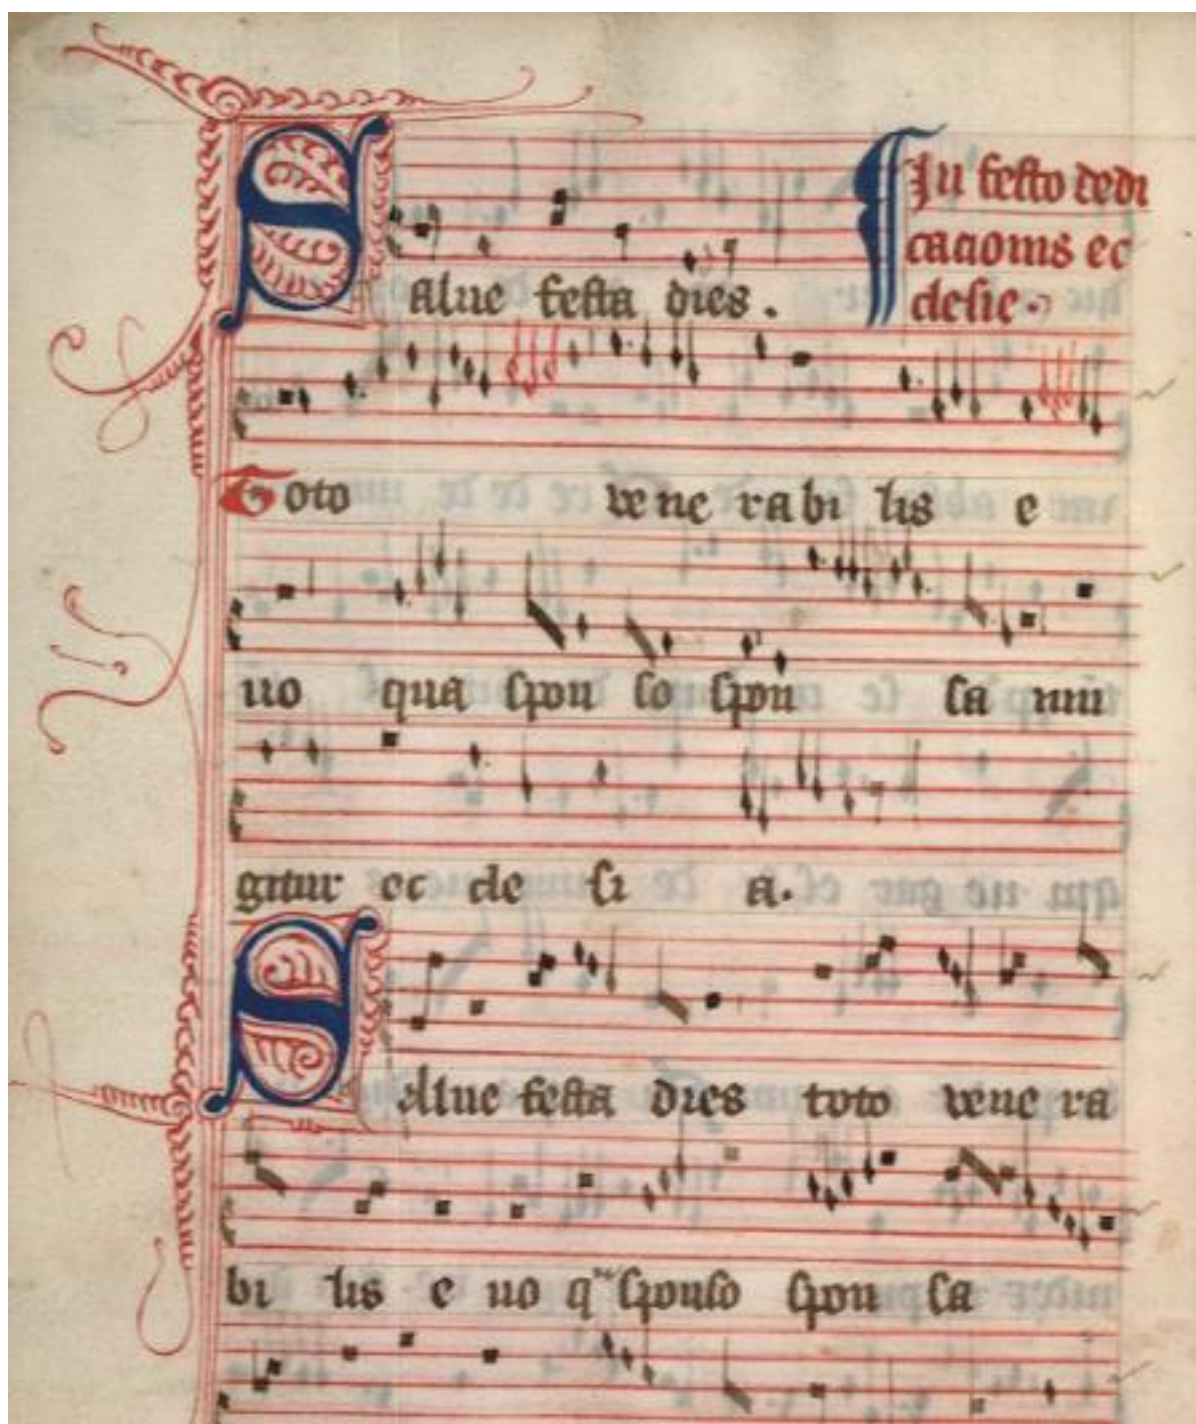 Salue festa dies.
In festo dedi
cacionis ec
clesie.
Toto vene rabi lis e
uo qua spon so spon sa iun
gitur ec cle si a.
Salue festa dies toto vene ra
bi lis e uo qᵃ sponso spon sa